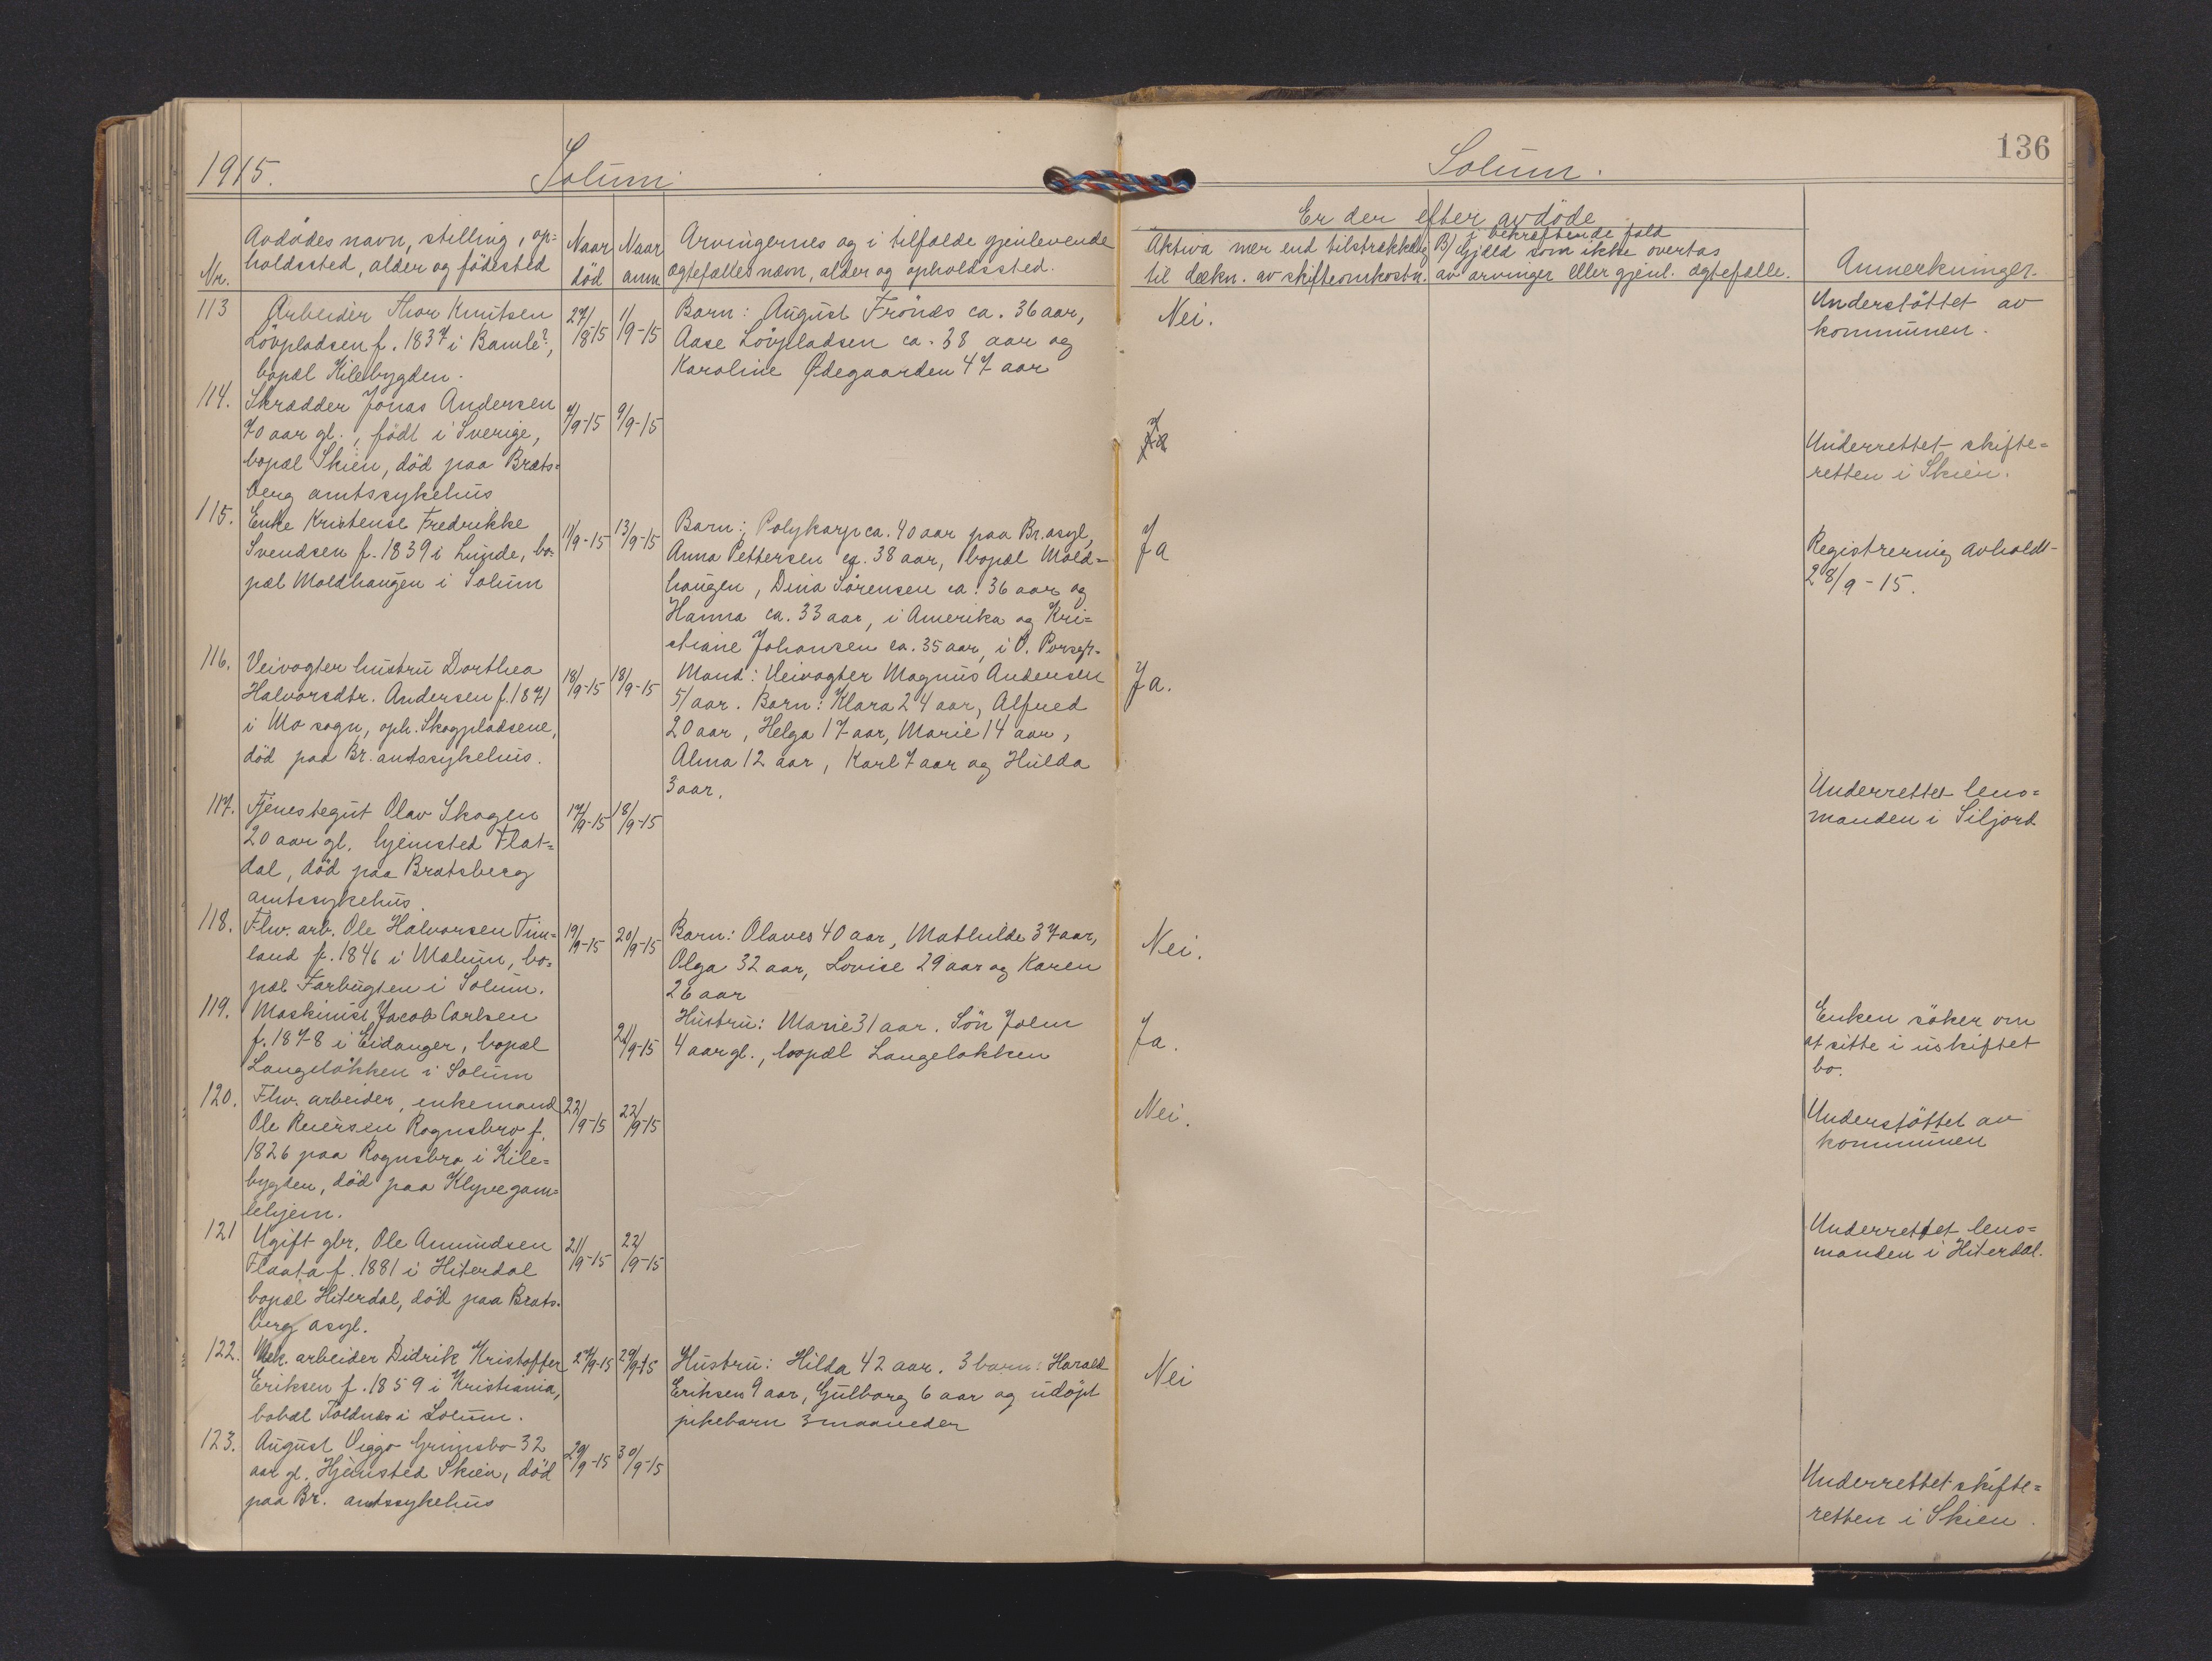 1915.
Solum
Solum.
136
Nr.
Avdödes navn, stilling, op=
holdssted, alder og födested
Naar
död
Naar
anm
Arvingernes og i tilfælde gjenlevende
ægtefælles navn, alder og opholdssted.
Er der efter avdöde
Aktiva mer end tilstrækkelig
til dækn. av skifteomkostn.
i bekræftende fald
B/ Gjæld som ikke overtas
av arvinger eller gjenl. ægtefælle.
Anmerkninger.
113
Arbeider Thor Knutsen
Lövpladsen f. 1837 i Bamle?,
bopæl Kilebygden.
27/8-15
1/9-15
Barn: August Frönæs ca. 36 aar,
Aase Lövpladsen ca. 38 aar og
Karoline Ødegaarden 47 aar
Nei.
Understöttet av
kommunen.
114.
Skrædder Jonas Andersen
70 aar gl., födt i Sverige,
bopæl Skien, död paa Brats=
berg amtssykehus
7/9-15
9/9-15
Ja
Underrettet skifte=
retten i Skien.
115.
Enke Kristense Fredrikke
Svendsen f. 1839 i Lunde, bo=
pæl Moldhaugen i Solum
11/9-15
13/9-15
Barn: Polykarp ca. 40 aar paa Br. asyl,
Anna Pettersen ca. 38 aar, bopæl Mold=
haugen, Dina Sörensen ca. 36 aar og
Hanna ca. 33 aar, i Amerika og Kri=
stiane Johansen ca. 35 aar, i Ö. Porsgr.
Ja
Registrering avholdt
28/9-15.
116.
Veivogter hustru Dorthea
Halvorsdtr. Andersen f. 1871
i Mo sogn, oph. Skogpladsene,
död paa Br. amtssykehus.
18/9-15
18/9-15
Mand: Veivogter Magnus Andersen
51 aar. Barn: Klara 24 aar, Alfred
20 aar, Helga 17 aar, Marie 14 aar,
Alma 12 aar, Karl 7 aar og Hulda
3 aar.
Ja.
117.
Tjenestegut Olav Skogen
20 aar gl. hjemsted Flat=
dal, död paa Bratsberg
amtssykehus.
17/9-15
18/9-15
Underrettet lens=
manden i Siljord
118.
Flw. arb. Ole Halvorsen Tim=
land f. 1846 i Mælum, bo=
pæl Farbugten i Solum.
19/9-15
20/9-15
Barn: Olaves 40 aar, Mathilde 37 aar,
Olga 32 aar, Lovise 29 aar og Karen
26 aar
Nei.
119.
Maskinist Jacob Carlsen
f. 1878 i Eidanger, bopæl
Langeløkken i Solum
21/9-15
Hustru: Marie 31 aar. Sön John
4 aar gl., bopæl Langeløkken
Ja.
Enken söker om
at sitte i uskiftet
bo.
120.
Flw. arbeider, enkemand
Ole Reiersen Rognsbro f.
1826 paa Rognsbro i Kile=
bygden, död paa Klyve gam=
lehjem.
22/9-15
22/9-15
Nei.
Understöttet av
kommunen
121
Ugift gbr. Ole Amundsen
Flaata f. 1881 i Hiterdal
bopæl Hiterdal, död paa Brats.
berg asyl.
21/9-15
22/9-15
Underrettet lens=
manden i Hiterdal.
122.
Mek. arbeider Didrik Kristoffer
Eriksen f. 1859 i Kristiania,
bobæl Toldnæs i Solum.
27/9-15
29/9-15
Hustru: Hilda 42 aar. 3 barn: Harald
Eriksen 9 aar, Gulborg 6 aar og udöpt
pikebarn 3 maaneder
Nei
123.
August Viggo Grimsbo 32
aar gl. Hjemsted Skien, död
paa Br. amtssykehus
29/9-15
30/9-15
Underrettet skifte=
retten i Skien.